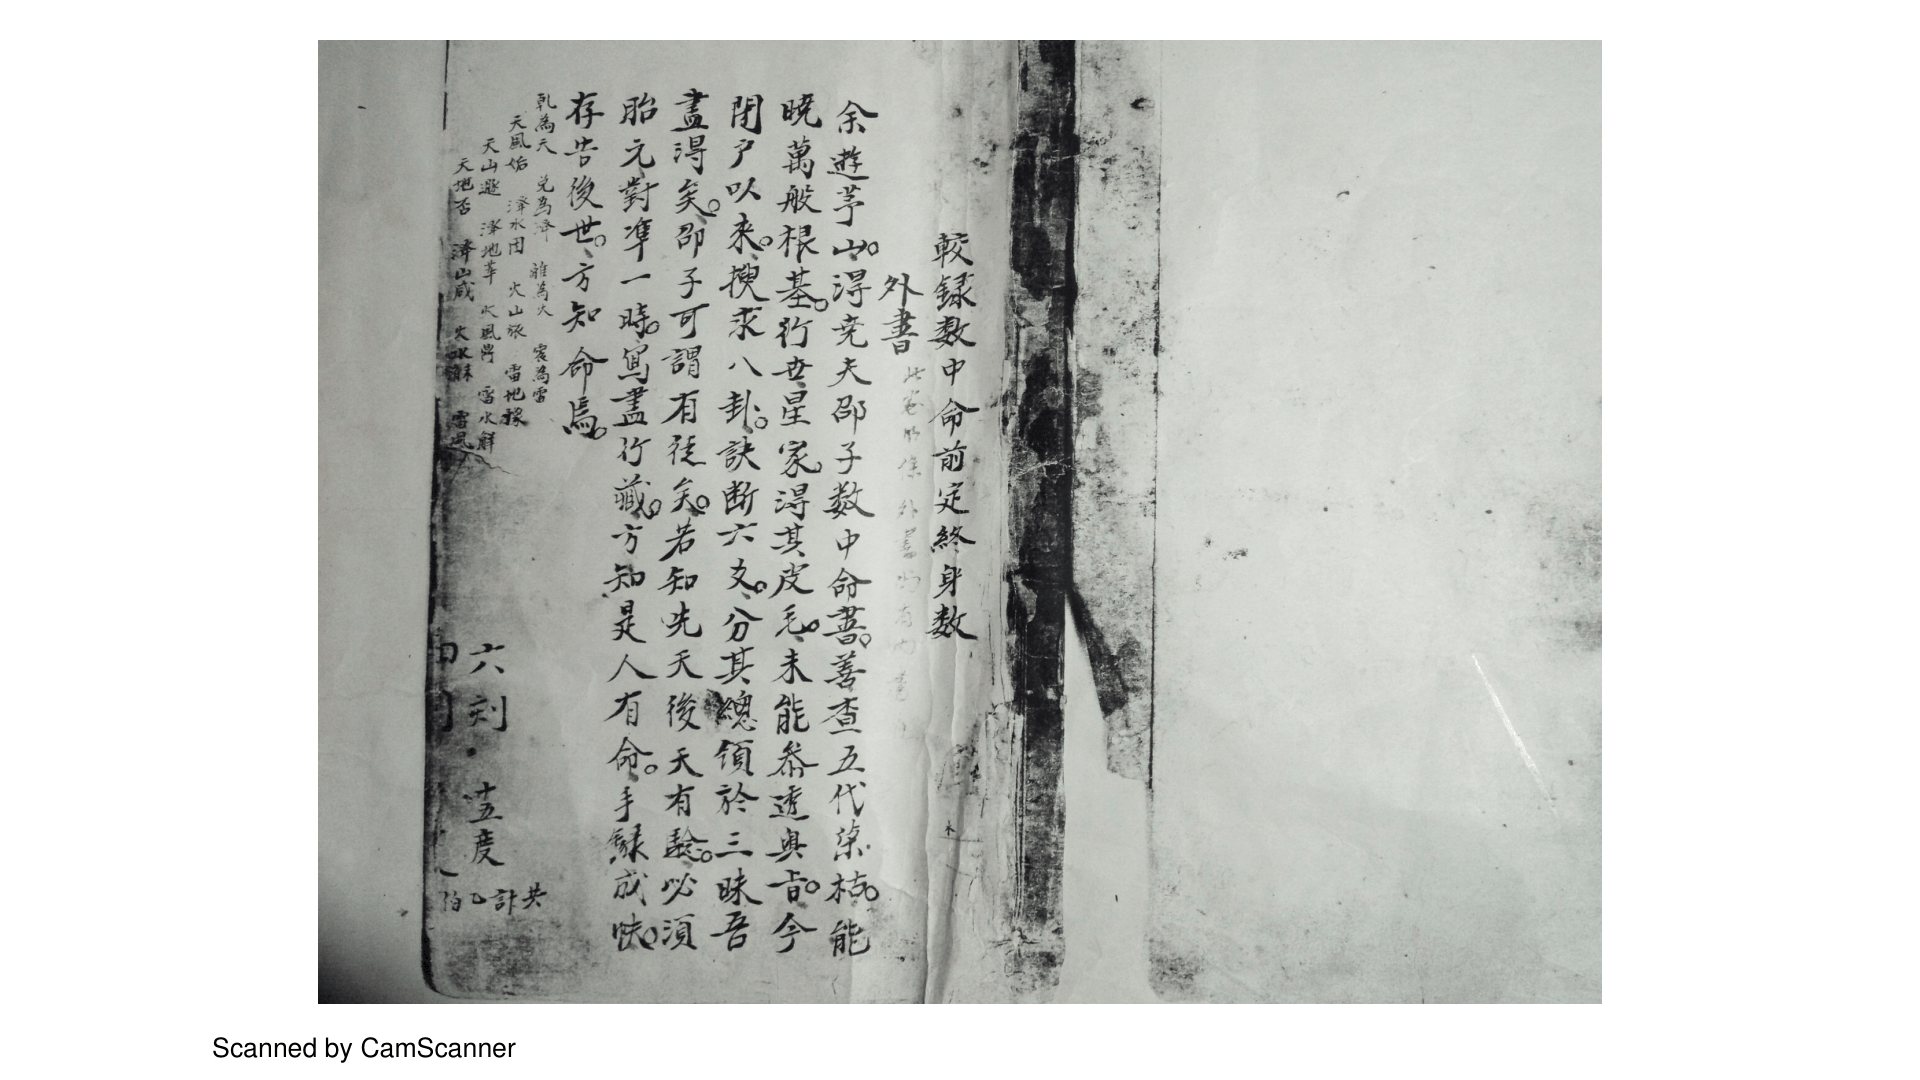 較録数中命前定終身数
外書
余遊茅山。得尭夫邵子数中命書。善查五代荣枯。能
曉萬般根基。行世星家。得其皮毛。未能叅透奥旨。今
閉户以來。搜求八卦。訣断六爻。分其總領於三昧吾
盡得矣。邵子可謂有徒矣。若知先天後天有騐。必須
胎元對凖一時。寫盡行藏。方知是人有命。手録成帙。
存告後世。方知命焉。
乾為天 兑為澤 離為火 震為雷
天風姤 澤水困 火山旅 雷地豫
天山遯 澤地萃 火風鼎 雷水解
天地否 澤山咸 火水未 雷風
六刻 十五度
共計
Scanned by CamScanner